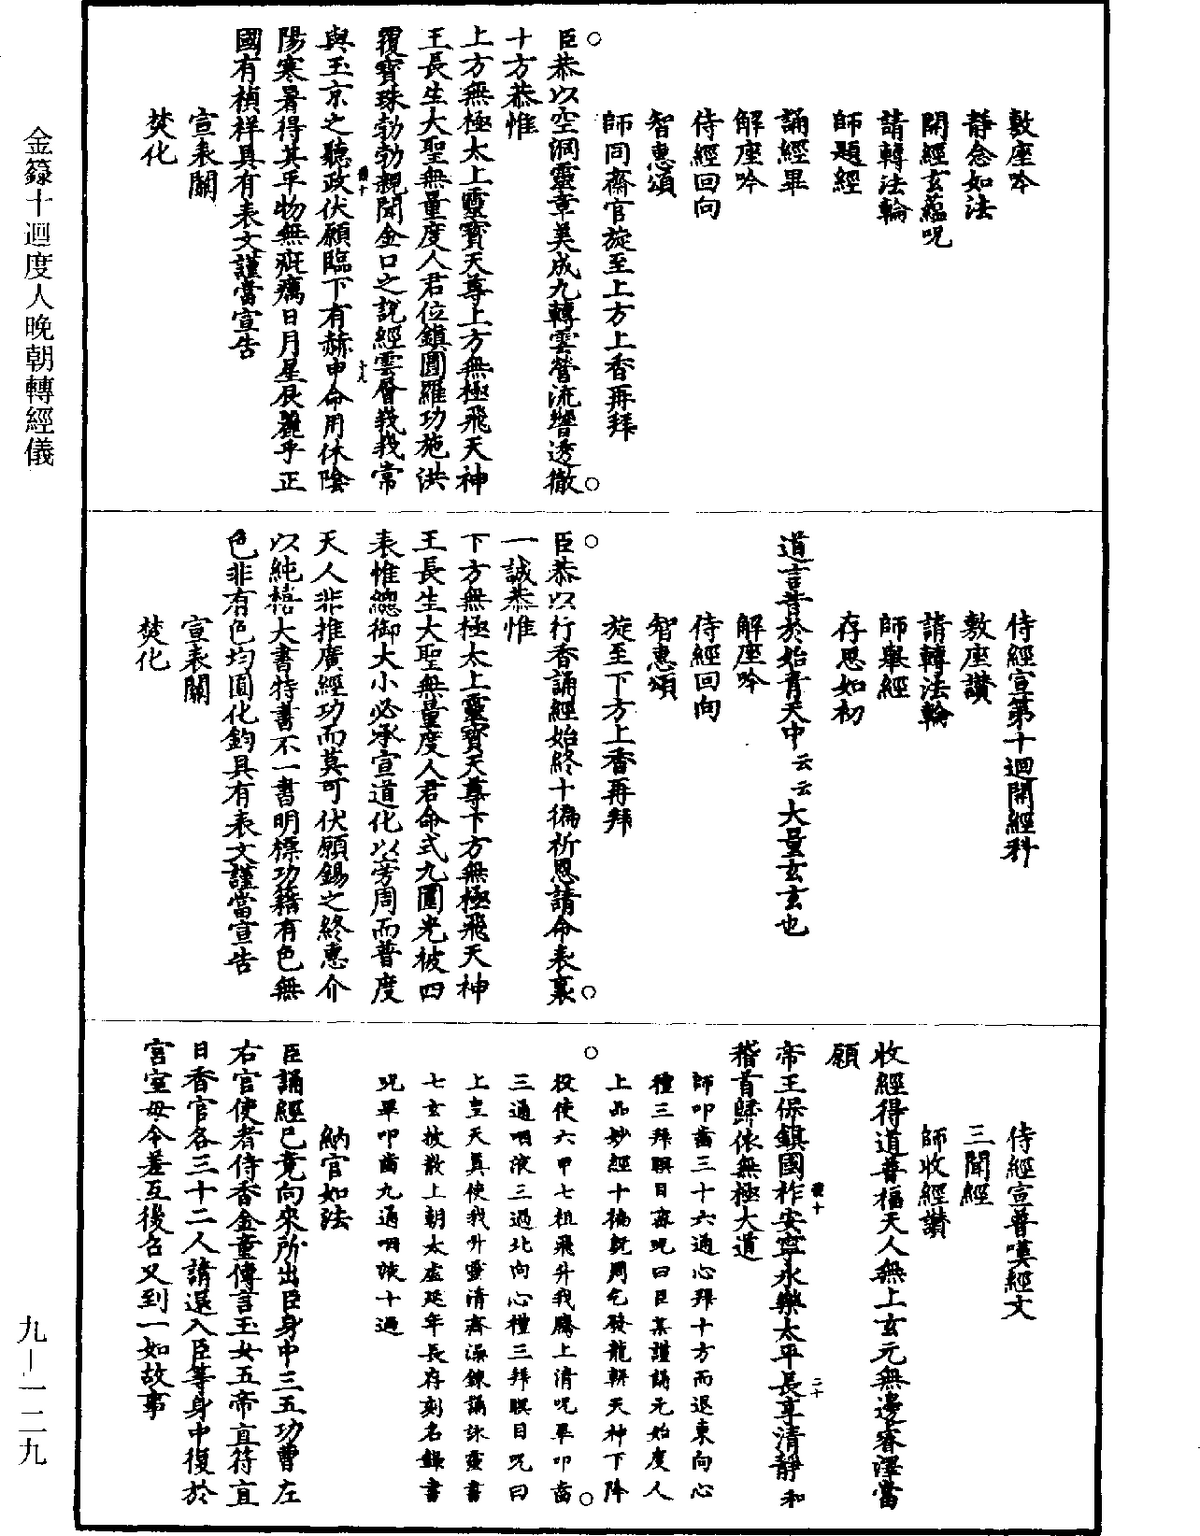 敷座吟
靜念如法
開經玄蘊呪
請轉法輪
師題經
誦經畢
解座吟
侍經回向
智惠頌
師同齋官旋至上方上香再拜
○
臣恭以空洞靈章美成九轉雲營流響透徹
○
十方恭惟
上方無極太上靈寶天尊上方無極飛天神
王長生大聖無量度人君位鎮圓羅功施洪
覆寶珠勃勃親聞金口之説經雲層莪莪常
與玉京之聽政伏願臨下有赫申命用休陰
陽寒暑得其平物無疵癘日月星辰麗乎正
國有禎祥具有表文謹當宣告
宣表關
焚化
侍經宣第十迴開經科
敷座讚
請轉法輪
師舉經
存思如初
道言昔於始青天中云云大量玄玄也
解座吟
侍經回向
智惠頌
旋至下方上香再拜
○
臣恭以行香誦經始終十徧祈恩請命表裏
○
一誠恭惟
下方無極太上靈寶天尊下方無極飛天神
王長生大聖無量度人君命式九圍光被四
表惟總御大小必承宣道化以旁周而普度
天人非推廣經功而莫可伏願錫之終惠介
以純禧大書特書不一書明標功籍有色無
色非有色均囿化鈞具有表文謹當宣告
宣表關
焚化
侍經宣普嘆經文
三聞經
師收經讚
收經得道普福天人無上玄元無邊睿澤當
願
帝王保鎮國祚安寧永樂太平長享清靜和
稽首歸依無極大道
師叩齒三十六通心拜十方而退東向心
禮三拜瞑目密呪曰臣某謹誦元始度人
上品妙經十徧既周乞發龍輧天神下降
○
役使六甲七祖飛升我騰上清呪畢叩齒
○
三通咽液三過北向心禮三拜瞑目呪曰
上皇天真使我升靈清齋澡鍊誦詠靈書
七玄披散上朝太虛延年長存刻名錄書
呪畢叩齒九通咽液十過
納官如法
臣誦經已竟向來所出臣身中三五功曹左
右官使者侍香金童傳言玉女五帝直符直
日香官各三十二人請還入臣等身中復於
宮室毋令差互後召又到一如故事
金籙十迴度人晚朝轉經儀
九－一二九